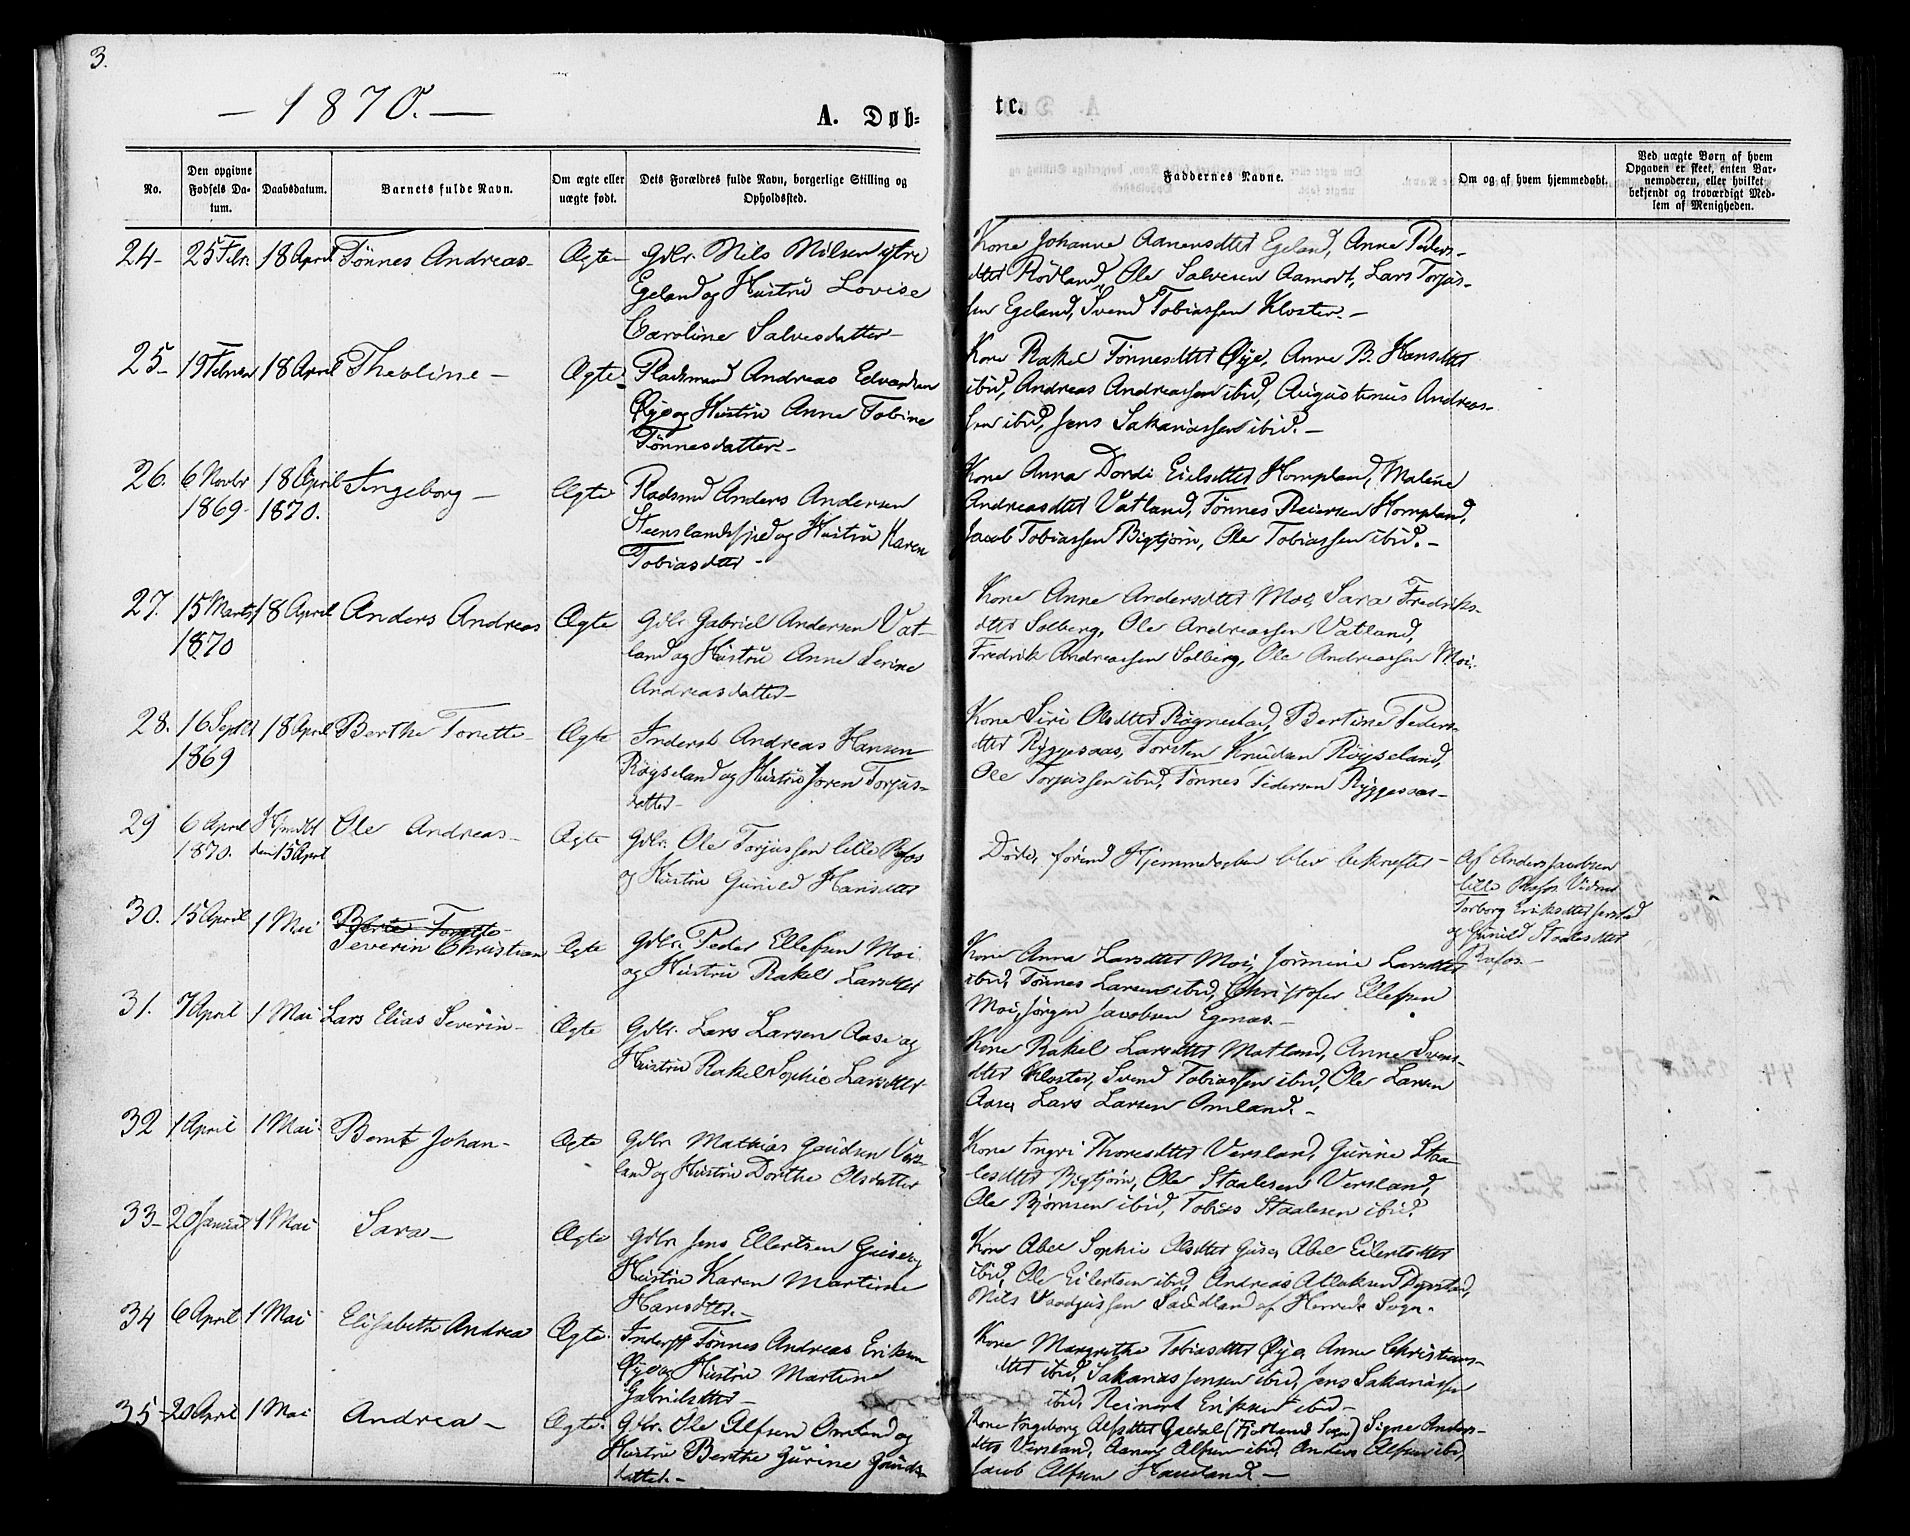 3.
— 1870. —
A. Døb-
te.
No.
Den opgivne Fødsels Da-
tum.
Daabsdatum.
Barnets fulde Navn.
Om ægte eller
uægte født.
Dets Forældres fulde Navn, borgerlige Stilling og
Opholdssted.
Faddernes Navne.
Om og af hvem hjemmedøbt.
Ved uægte Børn af hvem
Opgaven er skeet, enten Bar-
nemoderen, eller hvilket
bekjendt og troværdigt Med-
lem af Menigheden.
24- 25 Febr. 18 April Tønnes Andreas- Ægte- Gdbr. Nils Nilsen ytre
Egeland og Hustru Lovise
Caroline Salvesdatter-
Kone Johanne Aanensdtter Egeland, Anne Peders-
dtter Rödland, Ole Salvesen Aamodt, Lars Torjus-
sen Egeland, Svend Tobiassen Kloster.-
25- 19 Februar 18 April Theoline- Ægte- Pladsmand Andreas Edvardsen
Øye og Hustru Anne Tobine
Tønnesdatter-
Kone Rakel Tönnesdtter Øye, Anne B. Hansdtter
ibid, Andreas Andreassen ibid, Augustinus Andreas-
sen ibid, Jens Sakariassen ibid.-
26. 6 Novbr 18 April Ingeborg- Ægte Pladsmd Anders Andersen
1869- 1870.
og Hustru Karen
Tobiasdtter-
Kone Anna Dordi Hompland, Malene
Andreasdtter Vatland, Tønnes Reiersen Hompland,
Jacob Tobiassen Bigtjörn, Ole Tobiassen ibid.-
27. 15 Marts 18 April Anders Andreas Ægte Gdbr. Gabriel Andersen Vat-
1870
land og Hustru Anne Serine
Andreasdatter-
Kone Anne Andersdtter Moi, Sara Fredriks-
dtter Solberg, Ole Andreassen Vatland,
Fredrik Andreassen Solberg, Ole Andreassen Moi.
28. 16 Septbr 18 April Berthe Tonette- Ægte Inderst Andreas Hansen
1869
Røyseland og Hustru Joren Torjus-
datter-
Kone Siri Olsdtter Røgnestad, Bertine Peders-
dtter Ryggesaas, Torsten Knudsen Røyseland,
Ole Torjussen ibid, Tønnes Pedersen Ryggesaas-
29 6 April Hjmdbt Ole Andreas- Ægte Gdbr. Ole Torjussen lille Rafos
1870. den 15 April
og Hustru Gunild Hansdtter
Døde, førend Hjemmedaaben blev bekræftet-
Af Anders Jacobsen
lille Rafos. Vidner
Torborg Eriksdtter
og Gunild Staalesdtter
Rafos.-
30. 15 April 1 Mai Berte Tonette- Severin Christian Ægte Gdbr. Peder Ellefsen Moi
og Hustru Rakel Larsdtter
Kone Anna Larsdtter Moi, Jørmine Larsdtter
ibid, Tønnes Larsen ibid, Christofer Ellefsen
Moi, Jørgen Jacobsen Egenes.-
31. 7 April 1 Mai Lars Elias Severin- Ægte Gdbr. Lars Larsen Aase og
Hustru Rakel Sophie Larsdtter
Kone Rakel Larsdtter Motland, Anne Svens-
dtter Kloster, Svend Tobiassen ibid, Ole Larsen
Aase, Lars Larsen Omland.-
32 1 April 1 Mai- Bernt Johan- Ægte Gdbr. Mathias Gaudsen Vers-
land og Hustru Dorthe Olsdatter
Kone Ingri Thoresdtter Versland, Gurine Staa-
lesdtter Bigtjörn, Ole Staalesen Versland,
Ole Bjørnsen ibid, Tobias Staalesen ibid.
33- 20 Januar 1 Mai Sara- Ægte Gdbr. Jens Ellertsen
Hustru Karen Martine
Hansdtter.-
Kone Abel Sophie Olsdtter Abel Eilertsdtter
ibid, Ole Eilertsen ibid, Andreas
Nils Saudland af Herreds Sogn.
34 6 April 1 Mai Elisabeth Andrea Ægte- Inderst Tønnes Andreas Eriksen
Øye og Hustru Martine
Gabrielsdtter-
Kone Margrethe Tobiasdtter Øye, Anne Christians-
dtter ibid, Sakarias Jensen ibid, Jens Sakariassen
ibid, Reinert Eriksen ibid-
35- 20 April 1 Mai Andrea- Ægte- Gdbr. Ole Alfsen Omland og
Hustru Berthe Gurine Gauds-
datter.-
Kone Ingeborg Alfsdtter (Fjotland Sogn) Signe Anders-
dtter Versland, Aanen Alfsen ibid, Anders Alfsen ibid,
Jacob Alfsen Haugland.-